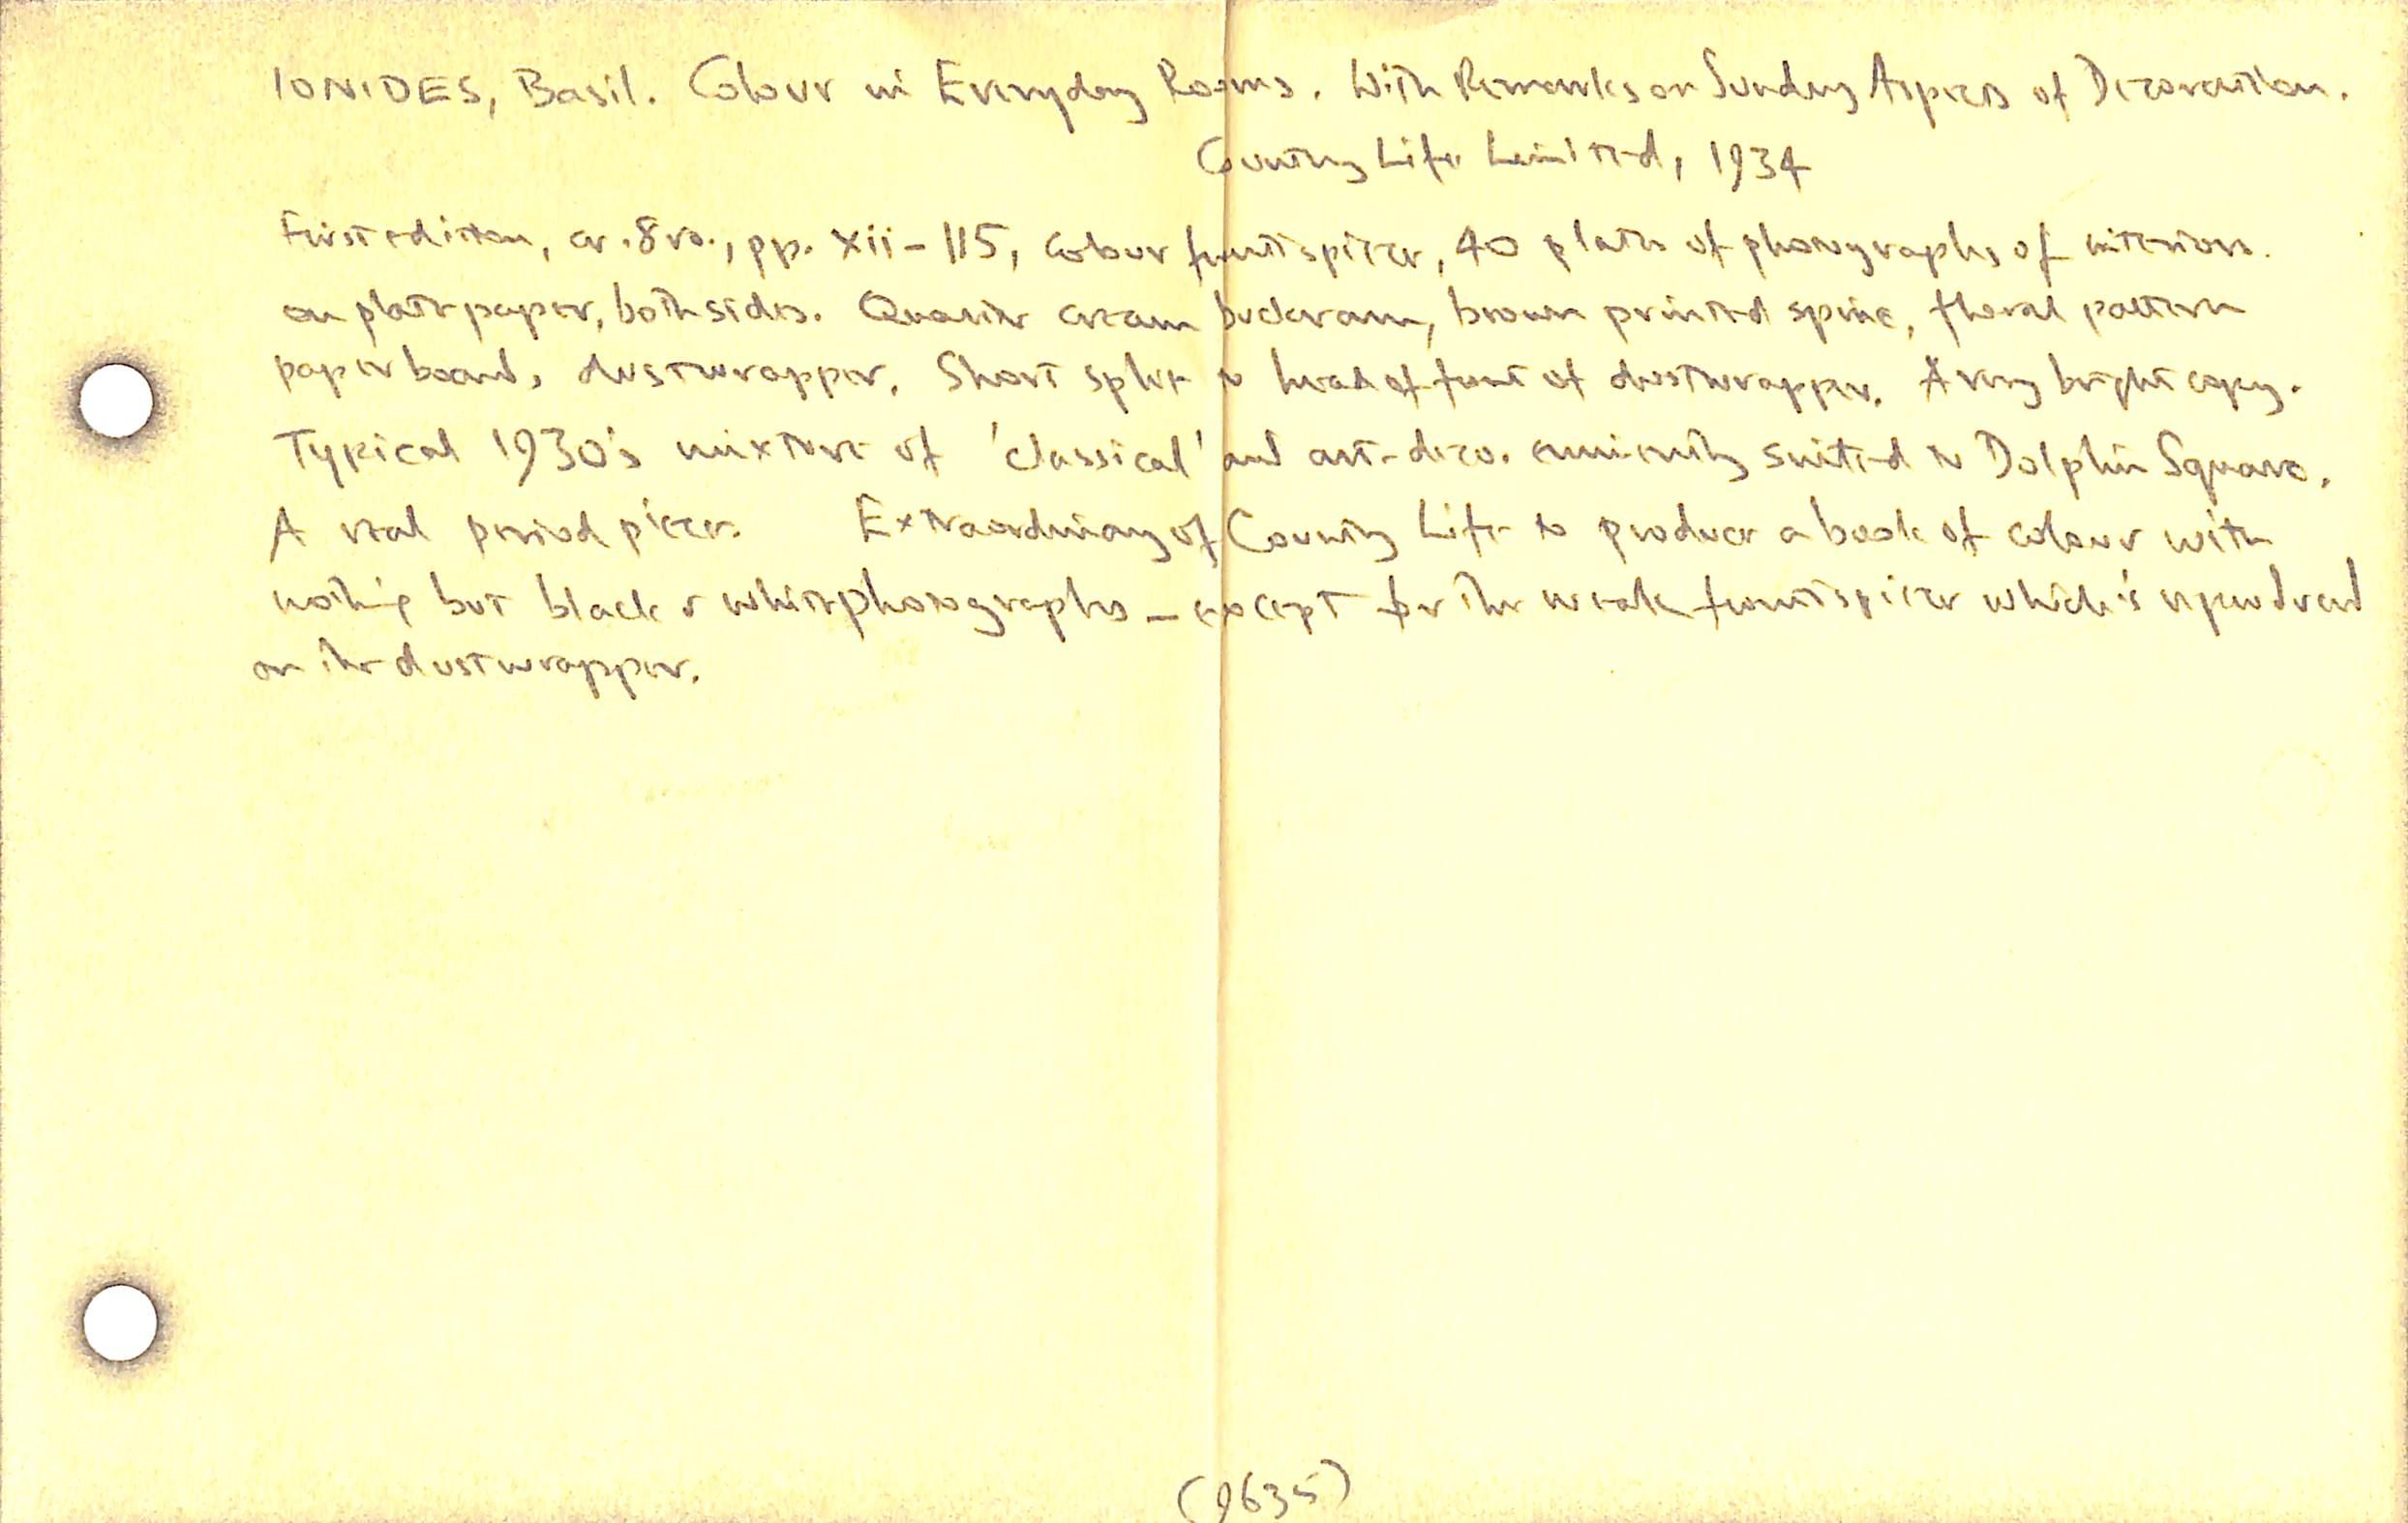 IONIDES, Basil. Colour in Everyday Rooms. With Remarks on Sundry Aspects of Decoration.
Country Life Limited, 1934
First edition, cr. 8vo., pp. xii-115, colour frontispiece, 40 plates of photographs of interiors.
on plate paper, both sides. Quarter cream buckram, brown printed spine, floral pattern
paper boards, dustwrapper. Short split to head of front of dustwrapper. A very bright copy.
Typical 1930's mixture of 'classical' and art-deco. eminently suited to Dolphin Square.
A real period piece. Extraordinary of Country Life to produce a book of colour with
nothing but black & white photographs - except for the weak frontispiece which is reproduced
on the dustwrapper.
(9635)